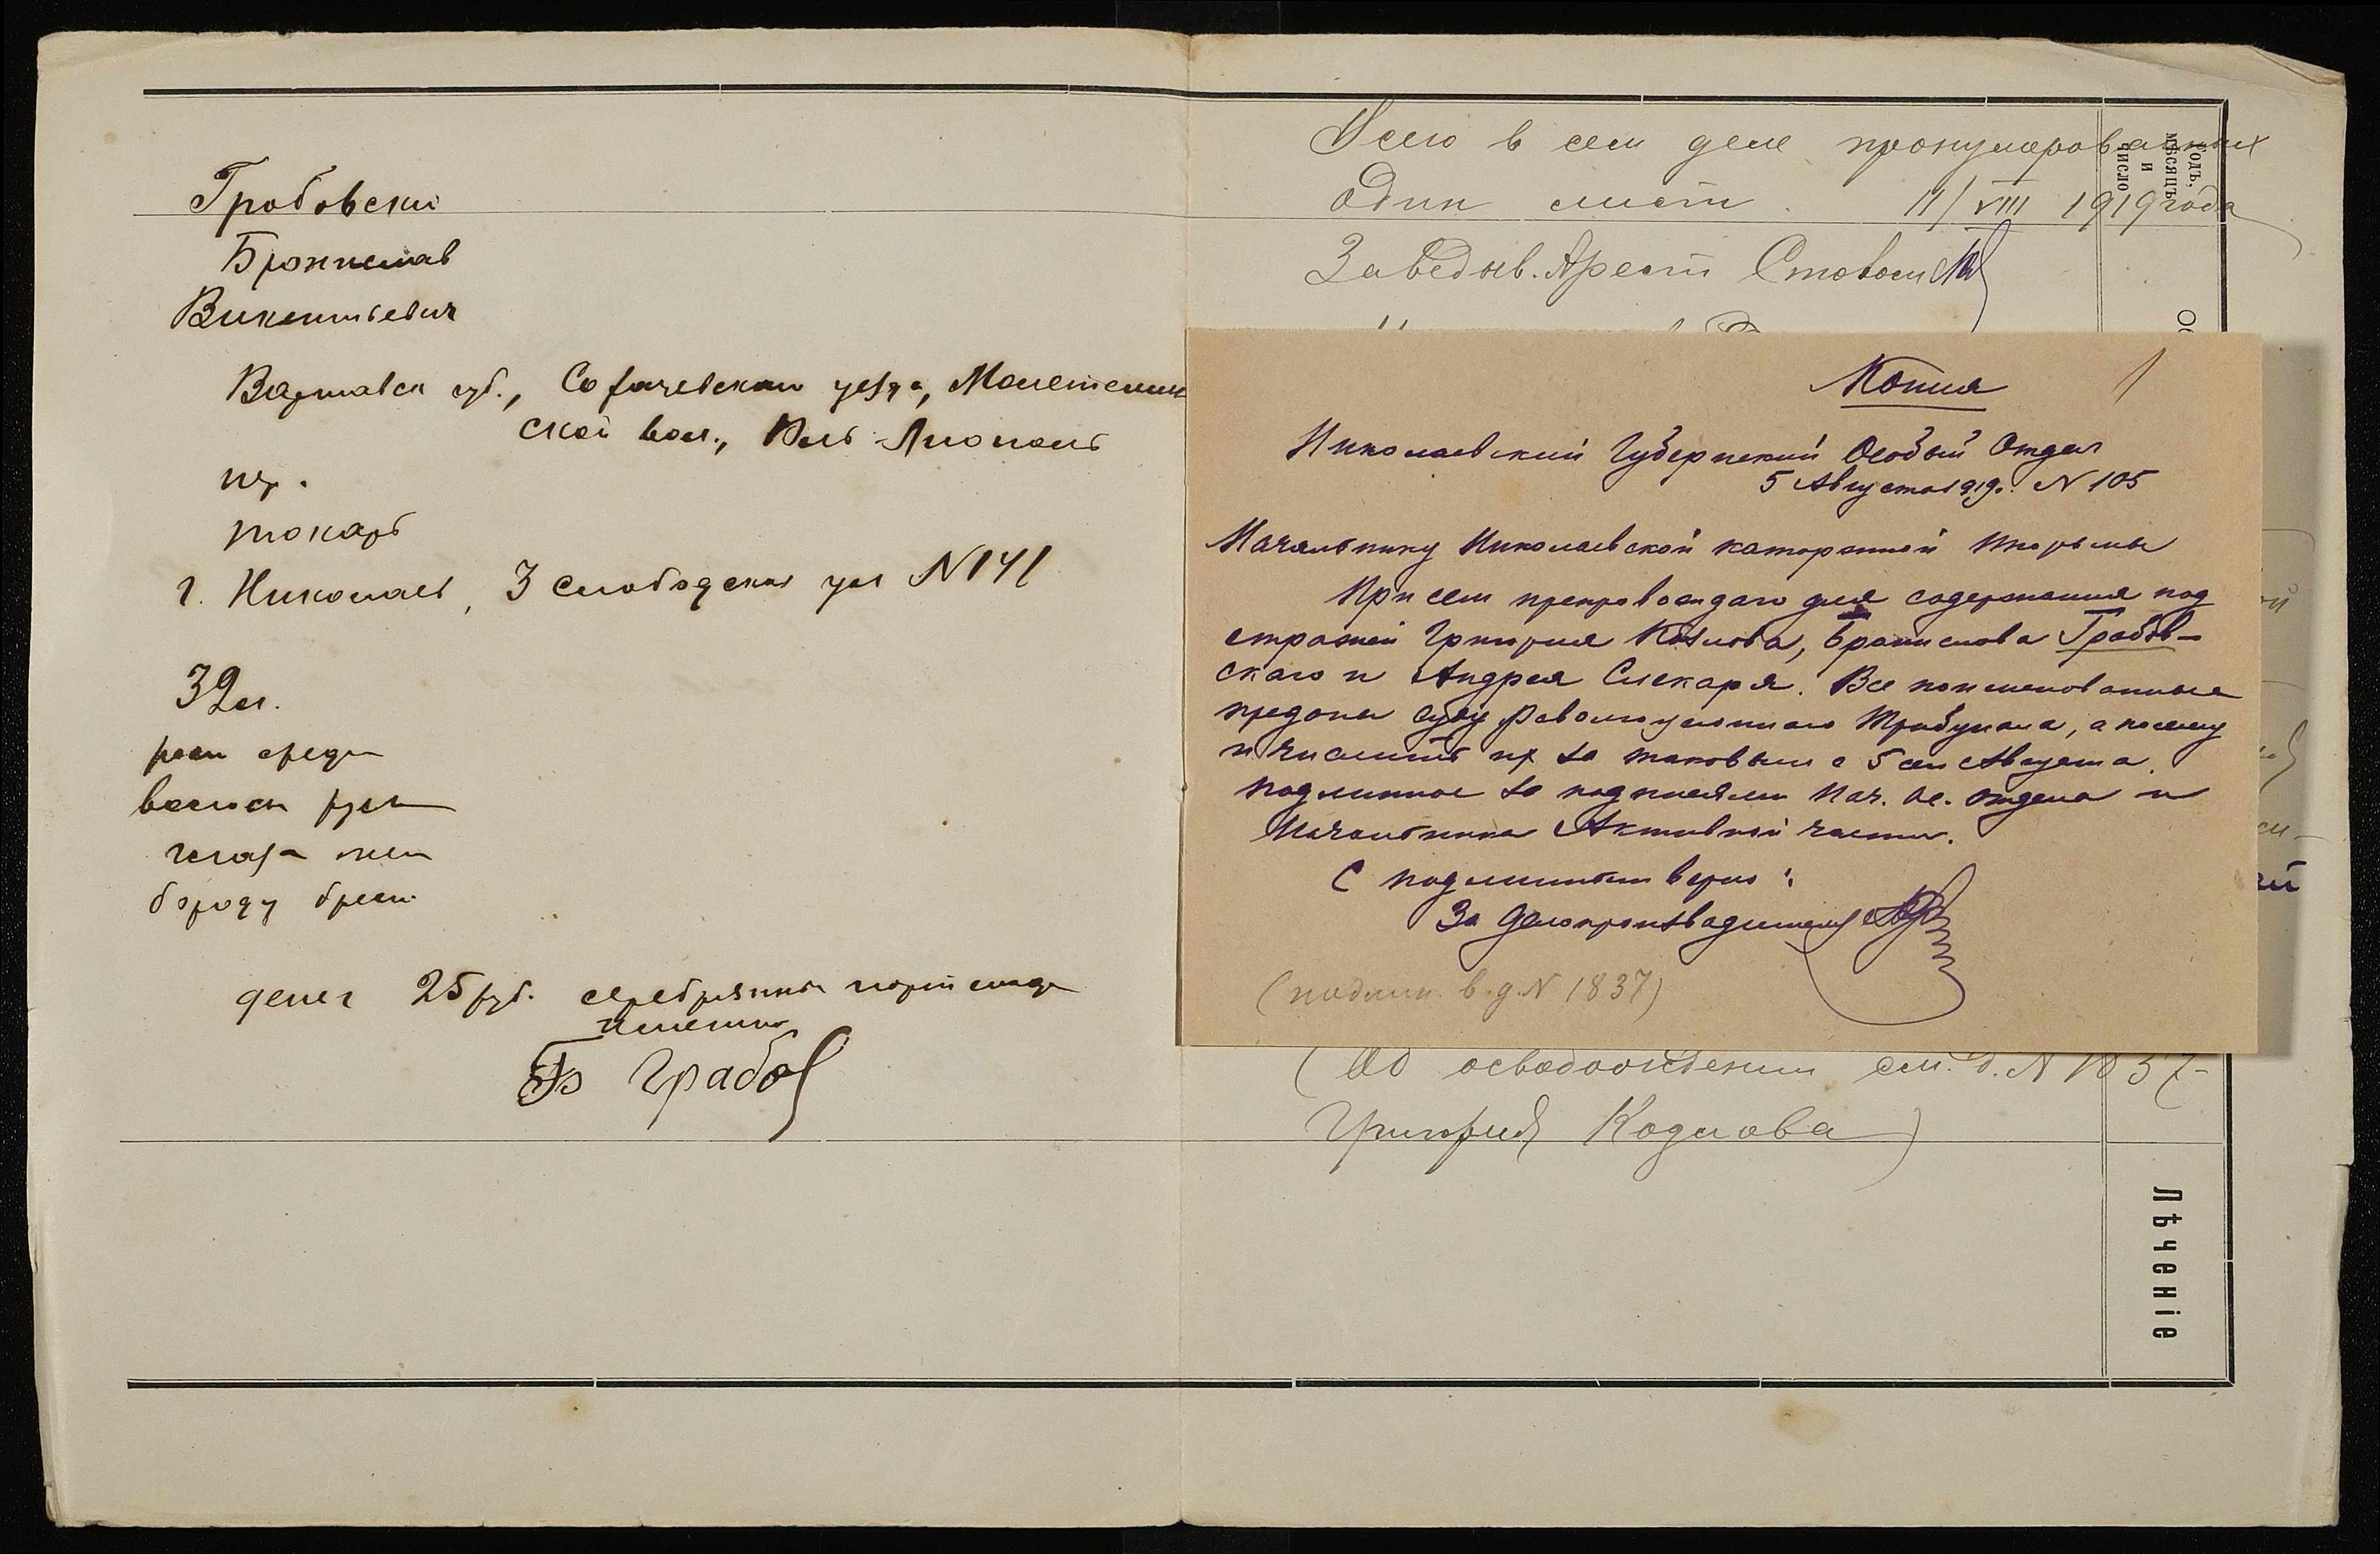 Грабовский
Бронислав
Викентьевич
Варшавск губ., Сохачевского уезда, Молетскин
ской вол.,
токарь
г. Николаев, 3 Слободская ул N 141
32 л.
рост средн
волосы русы
глаза
бороду бреет
денег 25 руб. серебрянный портсигар
имеет
Грабов
Всего в сем деле пронумерованных
Один лист. 11/VIII 1919 года
Заведыв. Арест Столом
Копия
1
Николаевский Губернский Особый Отдел
5 Августа 1919г. N 105
Начальнику Николаевской каторжной тюрьмы
При сем препровождаю для содержания под
стражей Григория Козлова, Бронислава Грабов-
скаго и Андрея Слекаря. Все поименованные
преданы суду Революционнаго Трибунала, а посему
и числить их за таковым с 5 сего Августа.
Подлинное за подписями Нач. Ос. отдела и
Начальника Активной части.
С подлинным верно:
За Делопроизводителя
(подлин. в д. N 1837)
(Об освобождении см. д. N 1837-
Григорий Козлова)
годъ,
мѣсяцъ
и
число
Лѣченіе